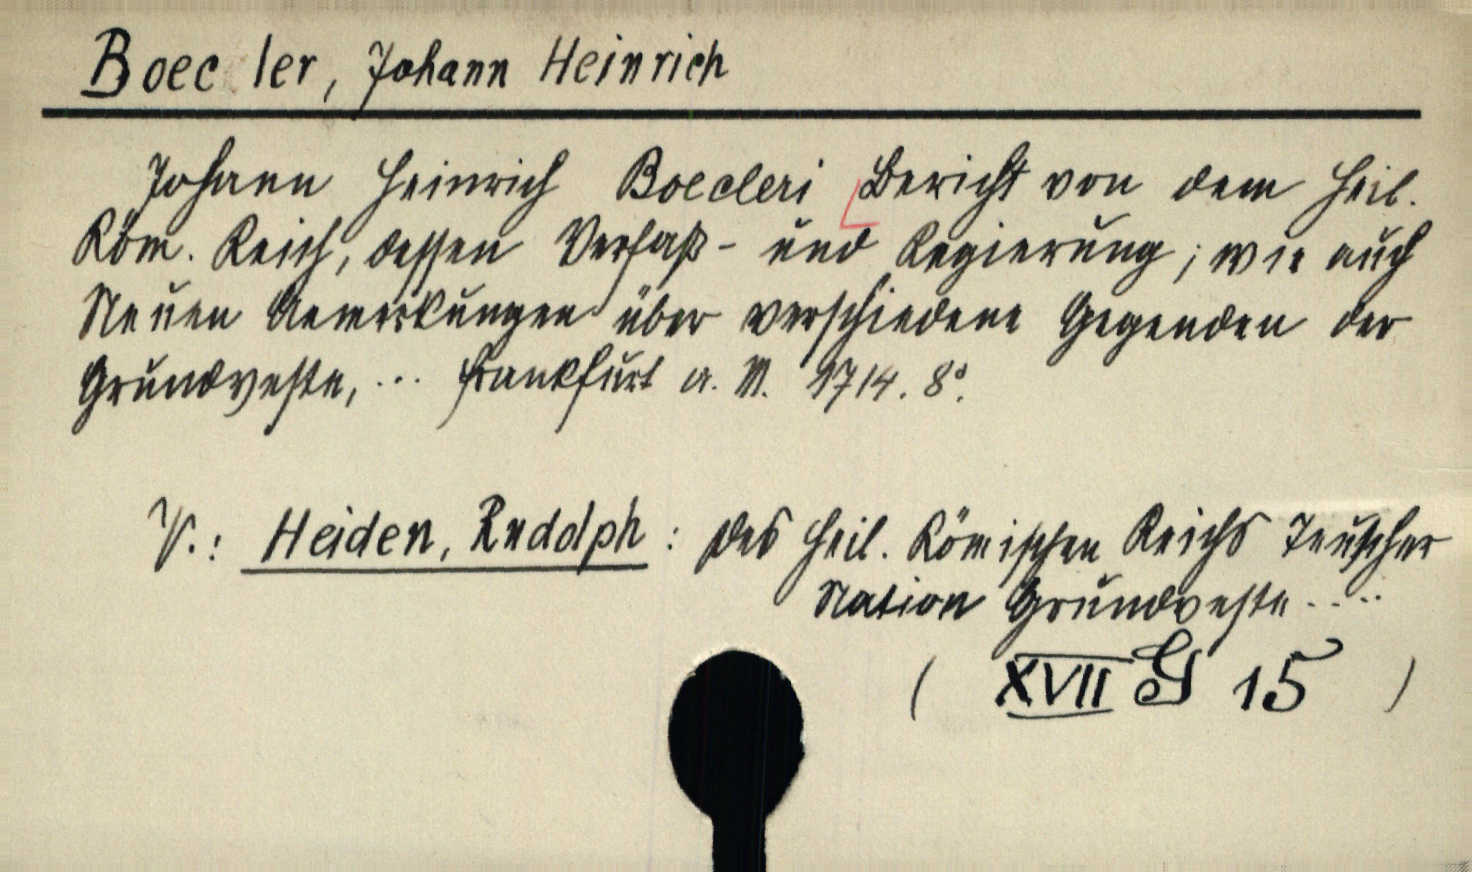 Boecler, Johann Heinrich
Johann Heinrich Boecleri Bericht von dem Heil.
Röm. Reich, dessen Verfaß- und Regierung; wie auch
Neuen Anmerkungen über verschiedene Gegenden der
Grundveste, ... Frankfurt a. M. 1714. 8°.
V.: Heiden, Rudolph: Des Heil. Römischen Reichs Teutscher
Nation Grundveste ....
( XVII G 15 )